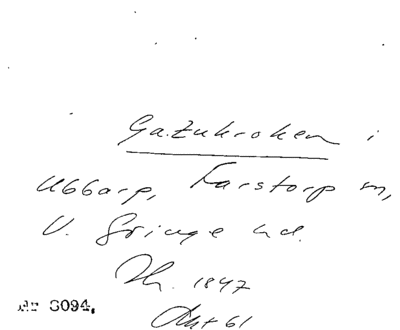 Ga. Zukroken i
Ubbarp, Farstorp sn,
V. Göinge hd.
Th. 1847
Akt 61
Nr 8094.